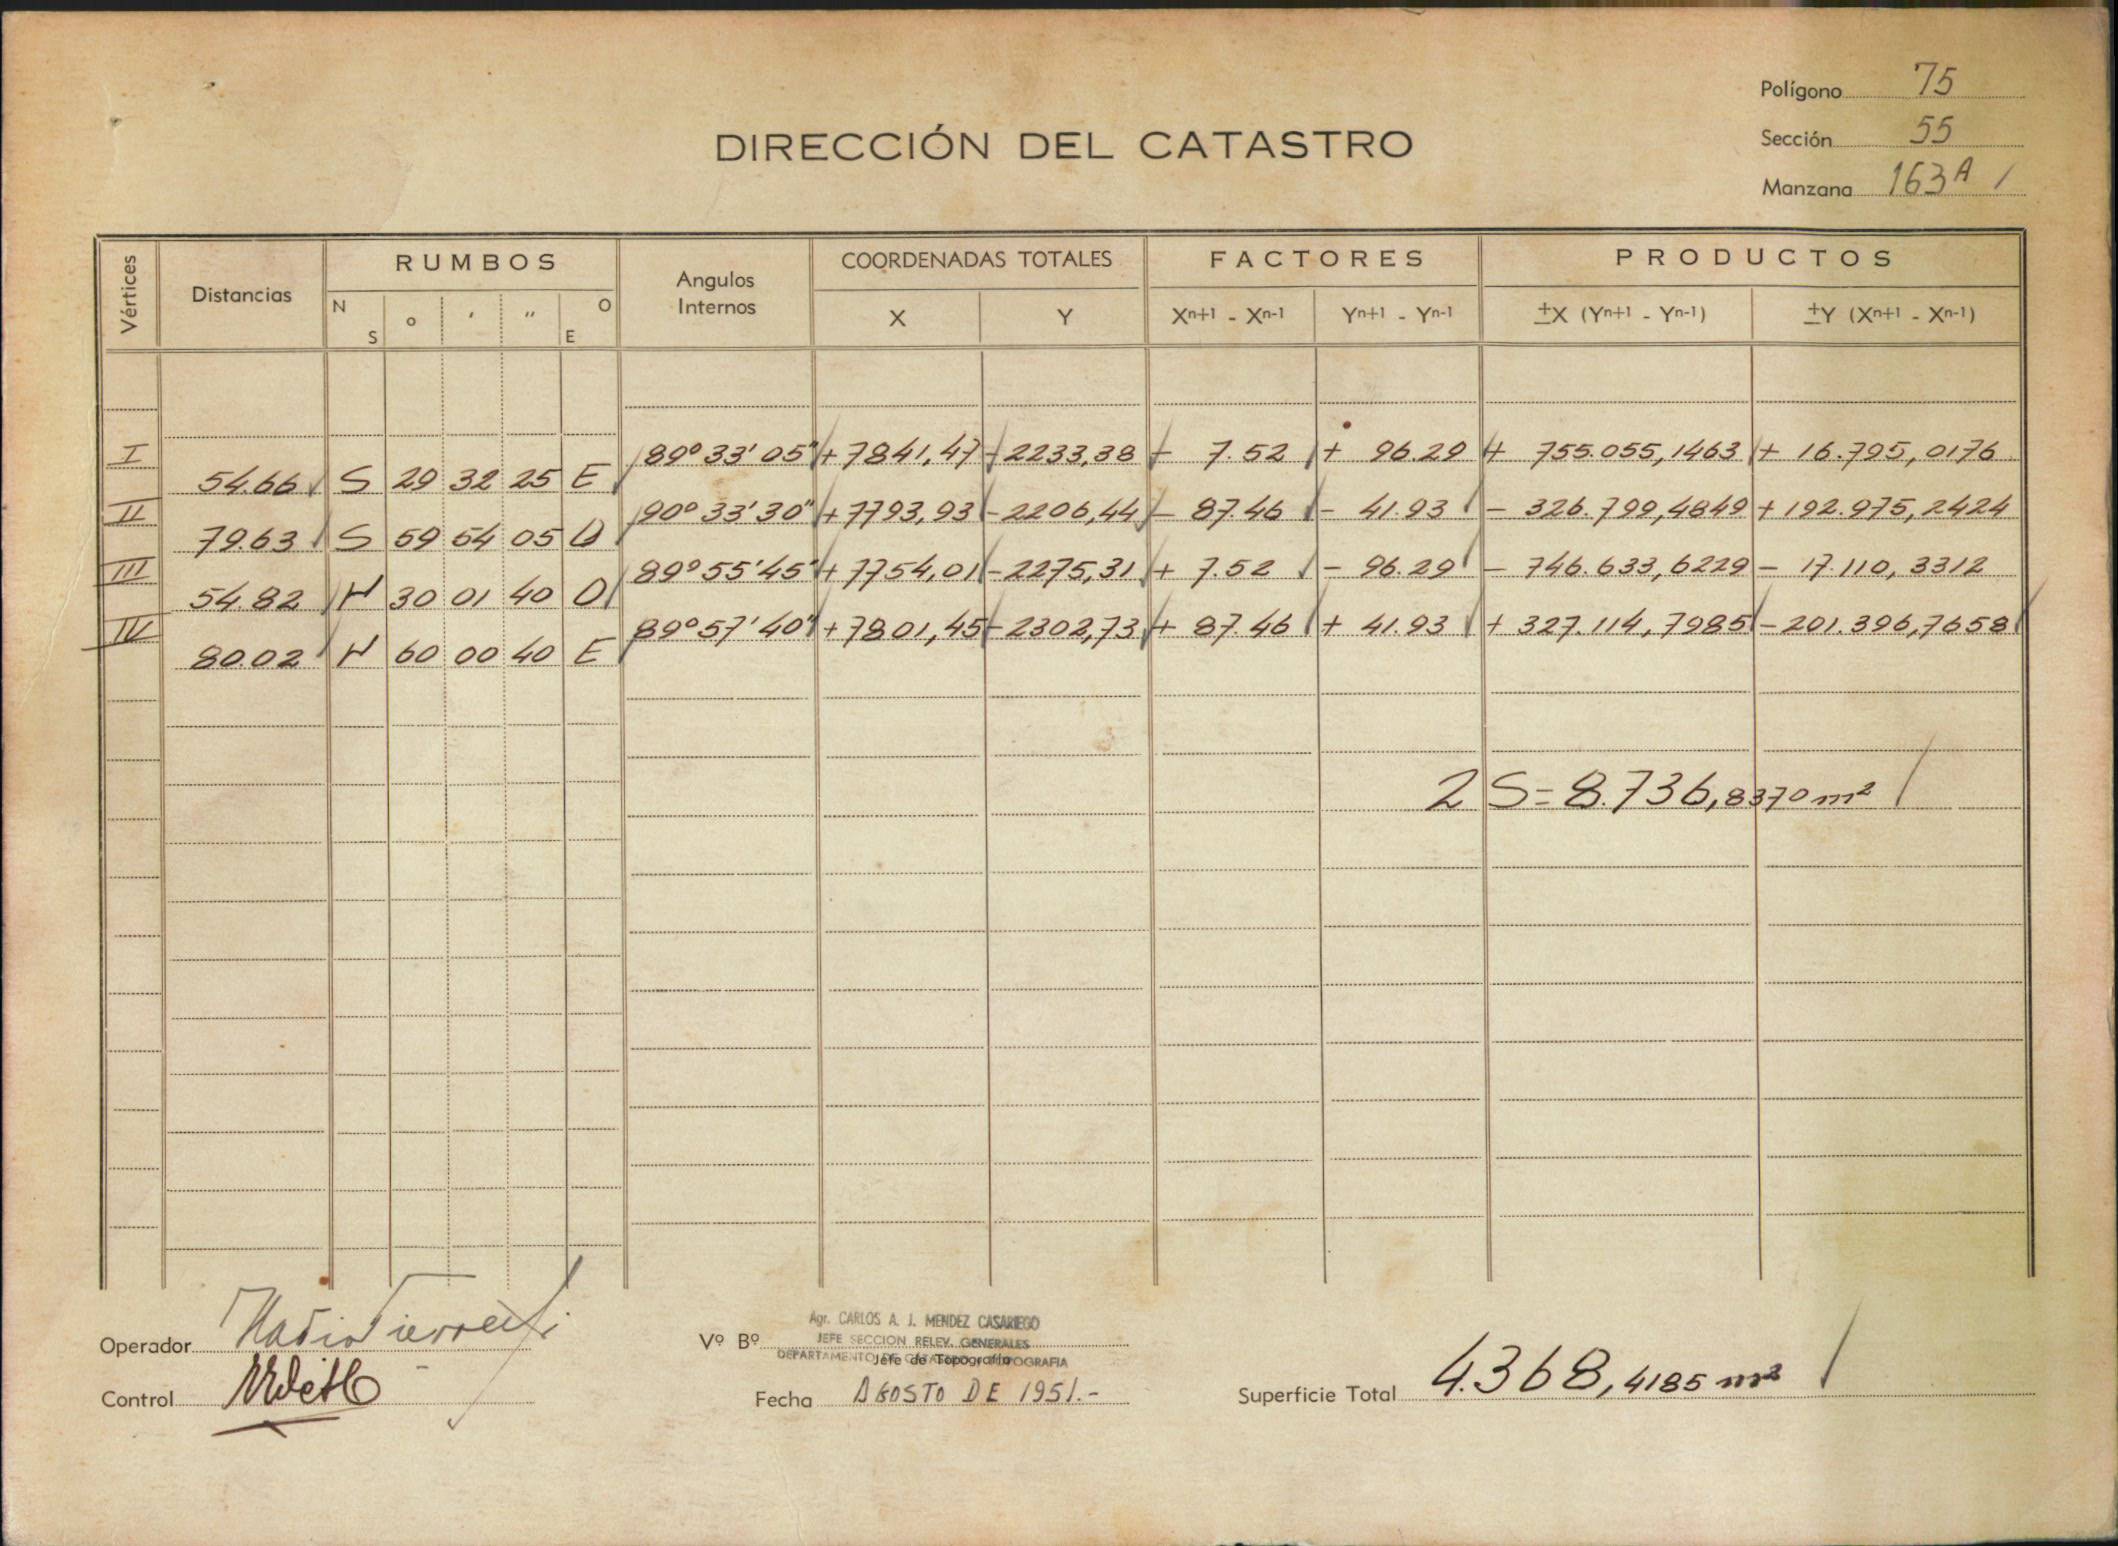 Polígono 75
DIRECCIÓN DEL CATASTRO
Sección 55
Manzana 163A /
Vértices Distancias RUMBOS Angulos Internos COORDENADAS TOTALES FACTORES PRODUCTOS
N S o ' " O E X Y Xn+1 - Xn-1 Yn+1 - Yn-1 ±X (Yn+1 - Yn-1) ±Y (Xn+1 - Xn-1)
I 89º 33' 05" +7841,47 -2233,38 - 7.52 + 96.29 + 755.055,1463 + 16.795,0176
54.66 S 29 32 25 E
II 90º 33' 30" +7793,93 -2206,44 - 87.46 - 41.93 - 326.799,4849 +192.975,2424
79.63 S 59 54 05 O
III 89º 55' 45" +7754,01 -2275,31 + 7.52 - 96.29 - 746.633,6229 - 17.110,3312
54.82 N 30 01 40 O
IV 89º 57' 40" +7801,45 -2302,73 + 87.46 + 41.93 + 327.114,7985 -201.396,7658
80.02 N 60 00 40 E
2 S = 8.736,8370 m²
Agr. CARLOS A. J. MENDEZ CASARIEGO
Operador
Vº Bº JEFE SECCION RELEV. GENERALES
DEPARTAMENTO DE CATASTRO Y TOPOGRAFIA
Jefe de Topografía
Control
Fecha AGOSTO DE 1951.-
Superficie Total 4.368,4185 m²